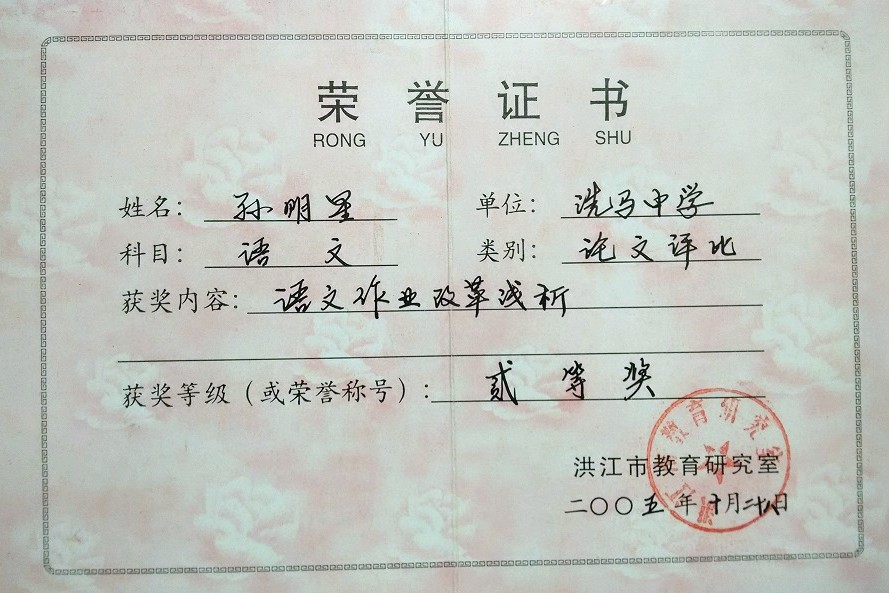 荣誉证书
RONG YU ZHENG SHU
姓名：孙明星 单位：洗马中学
科目：语文 类别：论文评比
获奖内容：语文作业改革浅析
获奖等级（或荣誉称号）：贰等奖
洪江市教育研究室
二〇〇五年十月二十八日